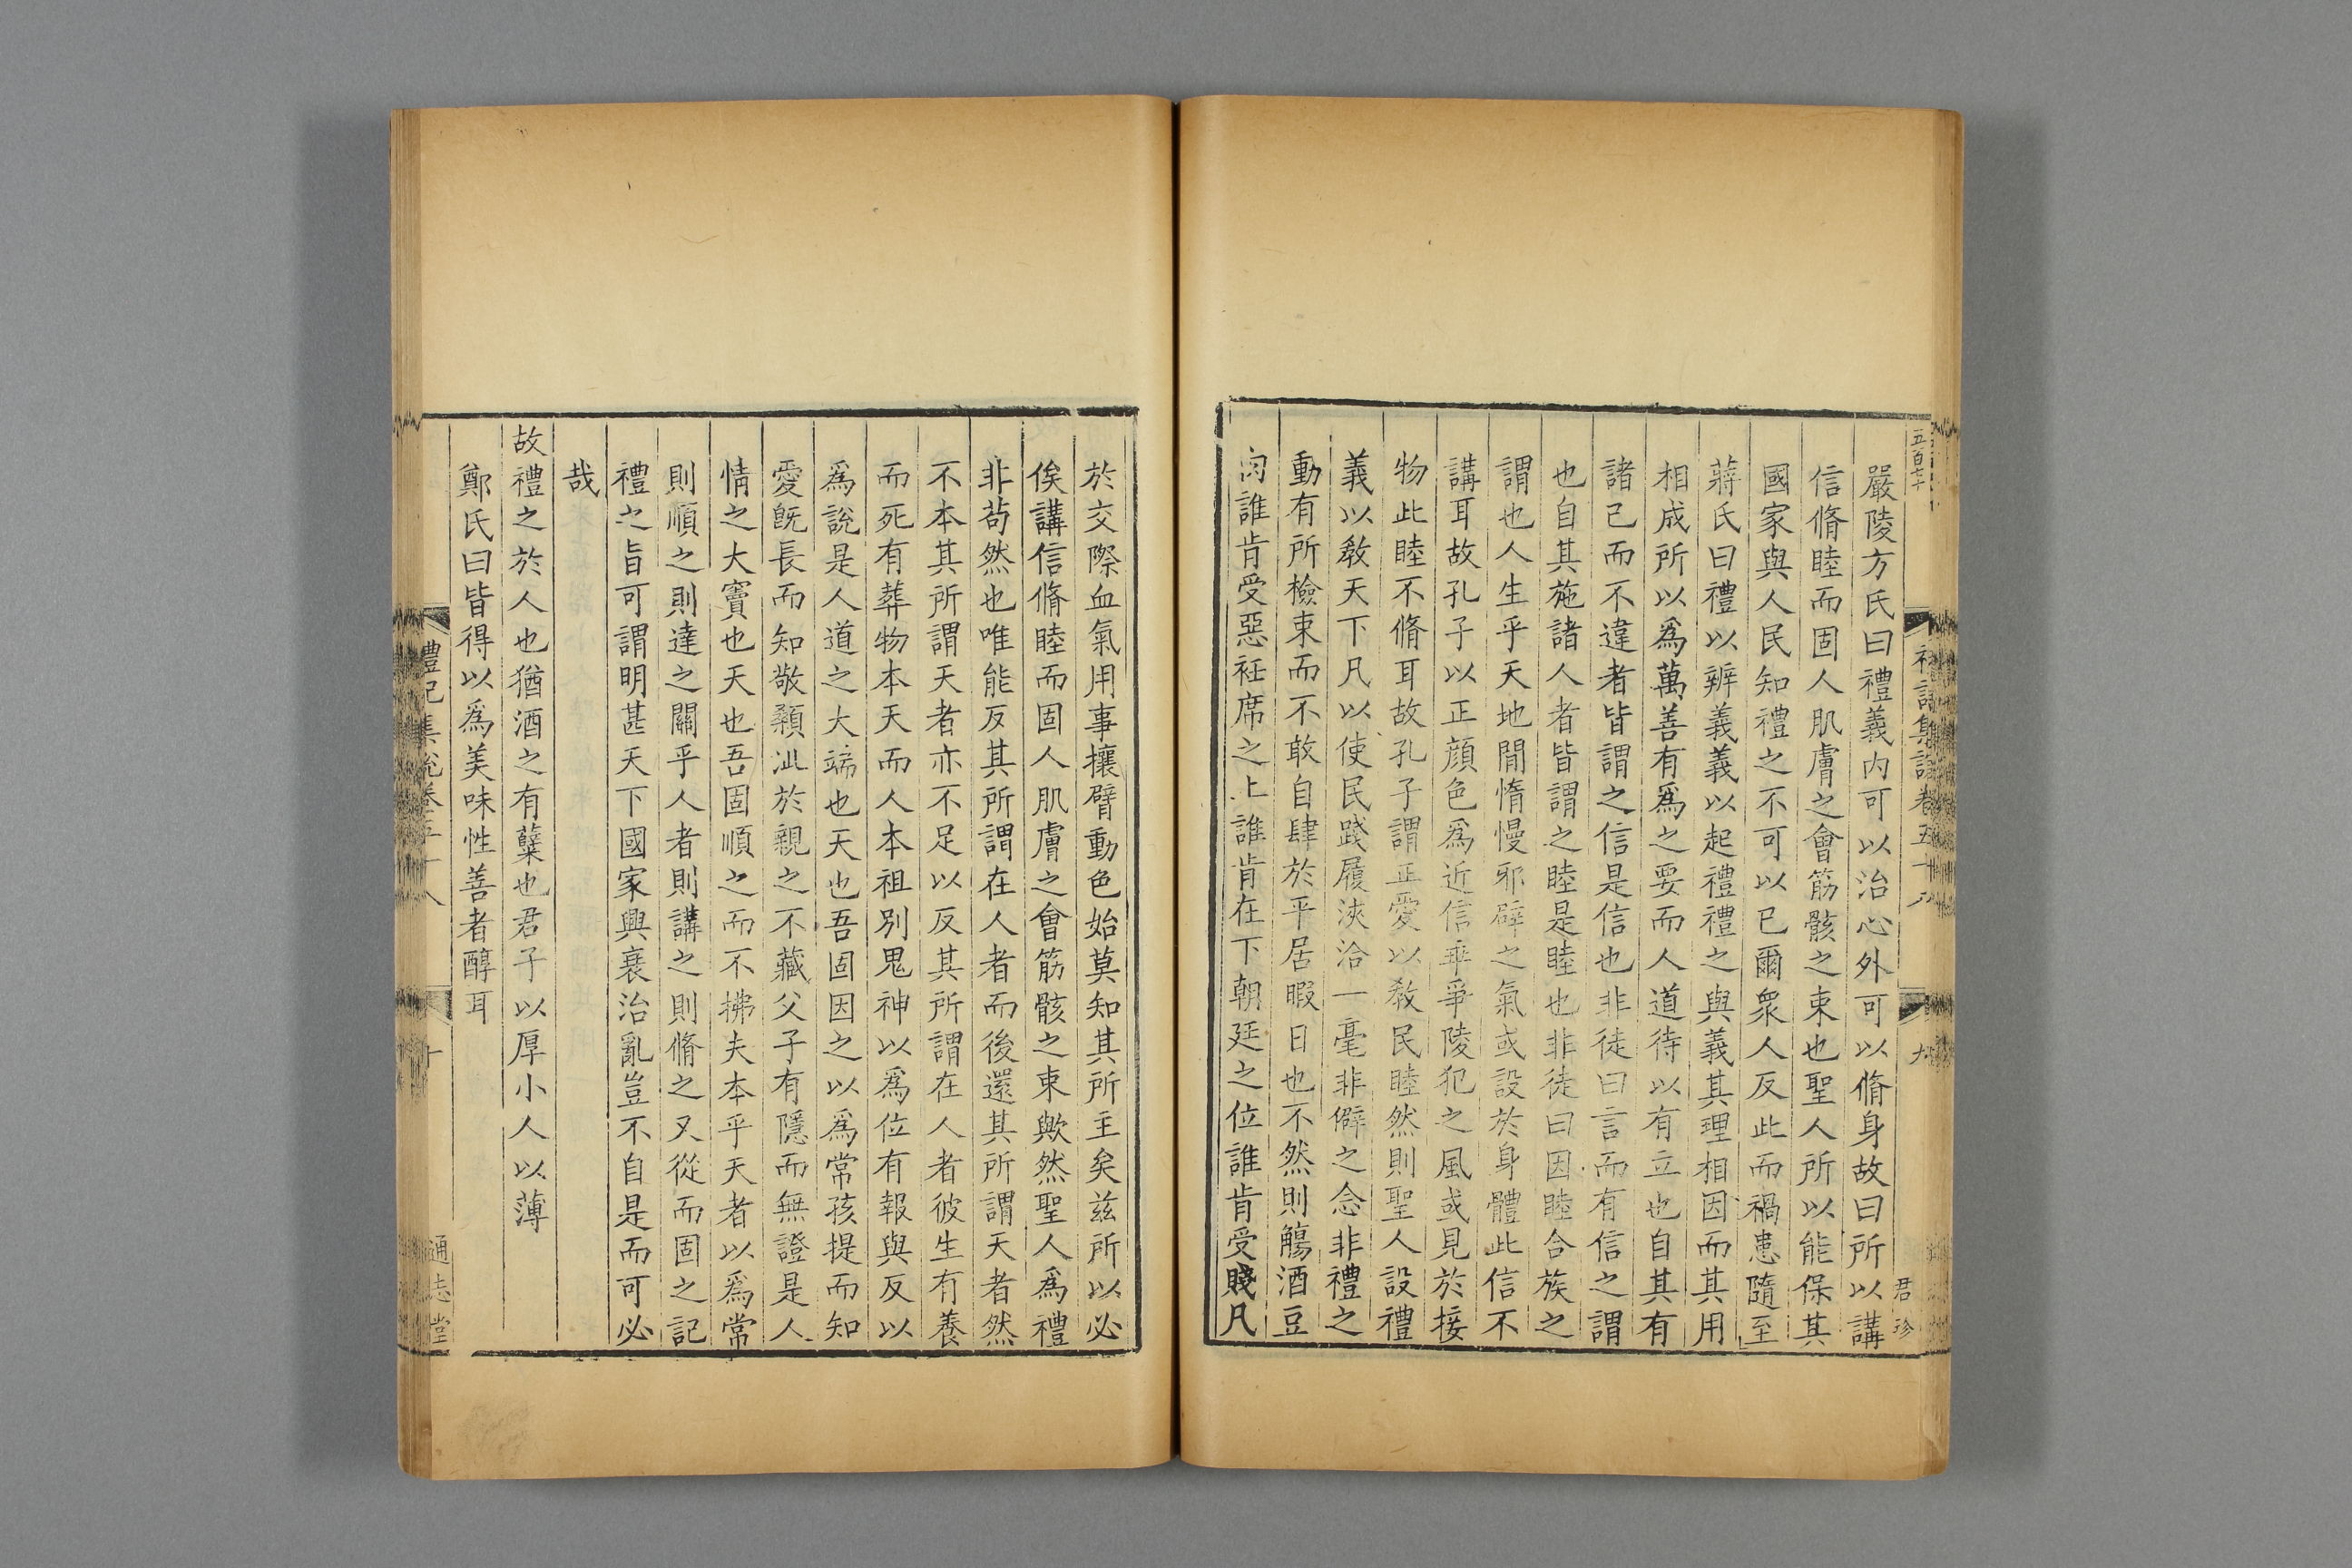 五百七十
禮記集說卷五十八
九
君珍
嚴陵方氏曰禮義內可以治心外可以脩身故曰所以講
信脩睦而固人肌膚之會筋骸之束也聖人所以能保其
國家與人民知禮之不可以已爾衆人反此而禍患隨至
蔣氏曰禮以辨義義以起禮禮之與義其理相因而其用
相成所以爲萬善有爲之要而人道待以有立也自其有
諸已而不違者皆謂之信是信也非徒曰言而有信之謂
也自其施諸人者皆謂之睦是睦也非徒曰因睦合族之
謂也人生乎天地間惰慢邪僻之氣或設於身體此信不
講耳故孔子以正顔色爲近信乖爭陵犯之風或見於接
物此睦不脩耳故孔子謂立愛以敎民睦然則聖人設禮
義以敎天下凡以使民踐履浹洽一毫非僻之念非禮之
動有所檢束而不敢自肆於平居暇日也不然則觴酒豆
肉誰肯受惡衽席之上誰肯在下朝廷之位誰肯受賤凡
於交際血氣用事攘臂動色始莫知其所主矣兹所以必
俟講信脩睦而固人肌膚之會筋骸之束歟然聖人爲禮
非苟然也唯能反其所謂在人者而後還其所謂天者然
不本其所謂天者亦不足以反其所謂在人者彼生有養
而死有葬物本天而人本祖別鬼神以爲位有報與反以
爲說是人道之大端也天也吾固因之以爲常孩提而知
愛旣長而知敬顙泚於親之不藏父子有隱而無證是人
情之大竇也天也吾固順之而不拂夫本乎天者以爲常
則順之則達之關乎人者則講之則脩之又從而固之記
禮之旨可謂明甚天下國家興衰治亂豈不自是而可必
哉
故禮之於人也猶酒之有糵也君子以厚小人以薄
鄭氏曰皆得以爲美味性善者醇耳
禮記集說卷五十八
十
通志堂